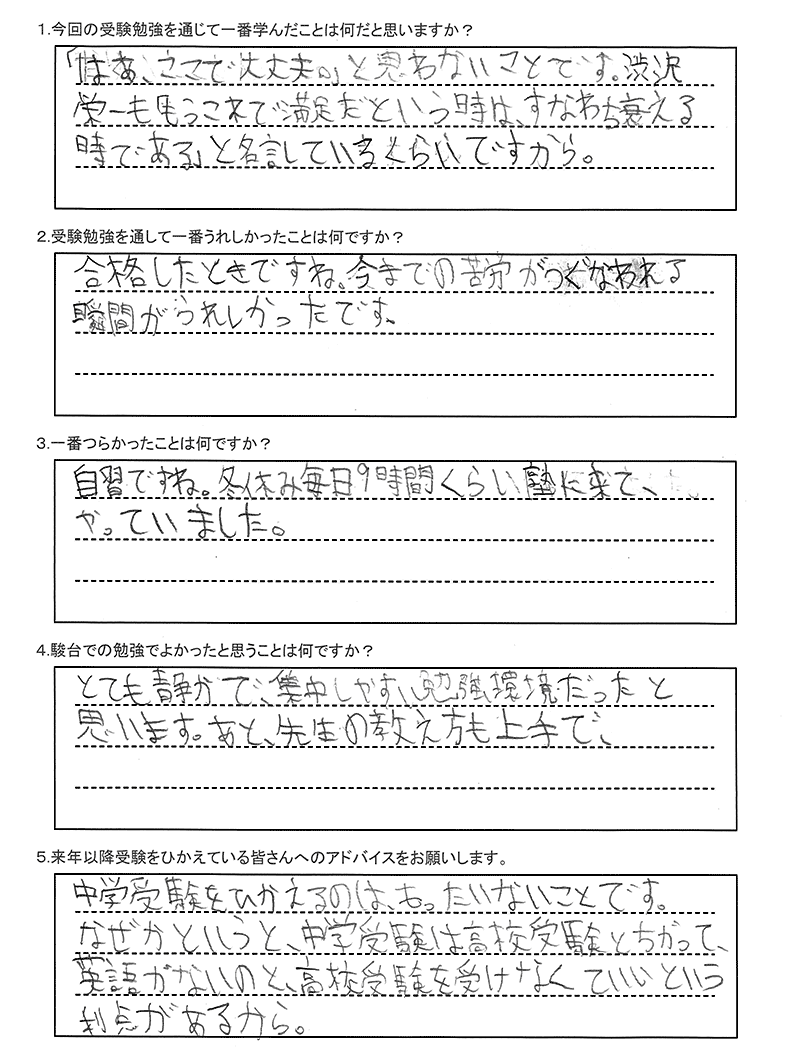 1.今回の受験勉強を通じて一番学んだことは何だと思いますか？
「まあ、ここで大丈夫。」と思わないことです。渋沢
栄一も「もうこれで満足だという時は、すなわち衰える
時である」と名言しているくらいですから。
2.受験勉強を通して一番うれしかったことは何ですか？
合格したときですね。今までの苦労がつぐなわれる
瞬間がうれしかったです。
3.一番つらかったことは何ですか？
自習ですね。冬休み毎日9時間くらい塾に来て、
やっていました。
4.駿台での勉強でよかったと思うことは何ですか？
とても静かで、集中しやすい勉強環境だったと
思います。あと、先生の教え方も上手で、
5.来年以降受験をひかえている皆さんへのアドバイスをお願いします。
中学受験をひかえるのは、もったいないことです。
なぜかというと、中学受験は高校受験とちがって、
英語がないのと、高校受験を受けなくていいという
利点があるから。